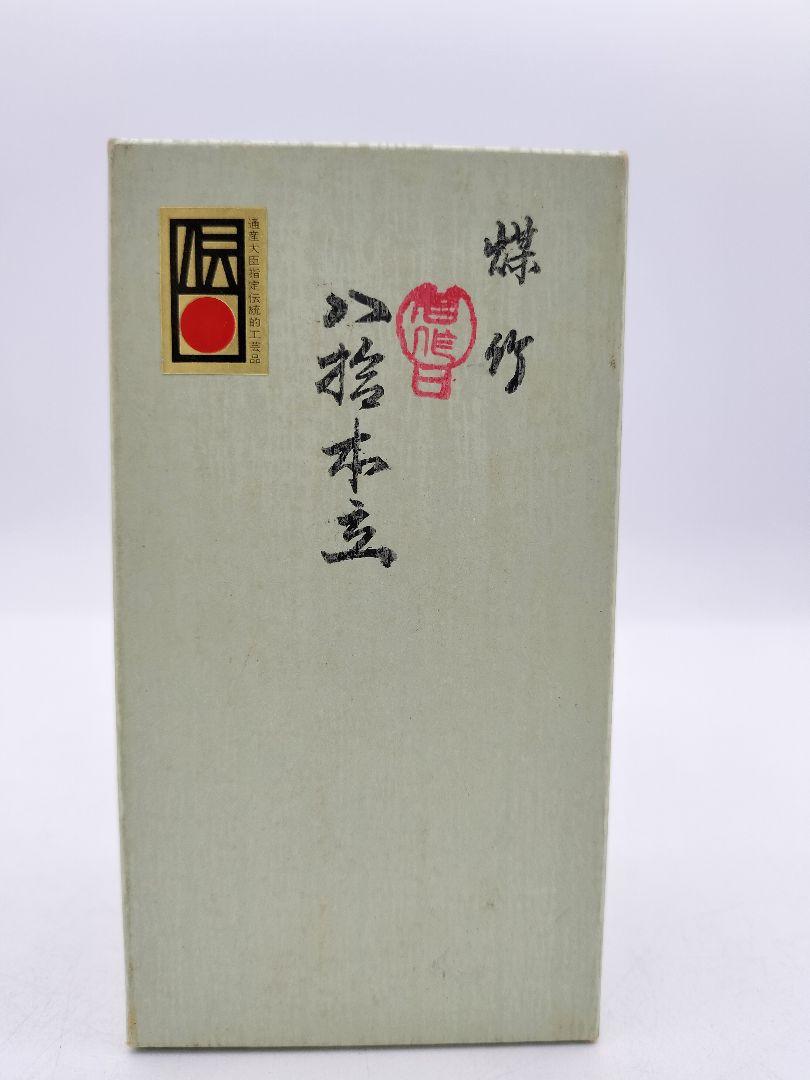 煤竹
八拾本立
伝
通産大臣指定伝統的工芸品